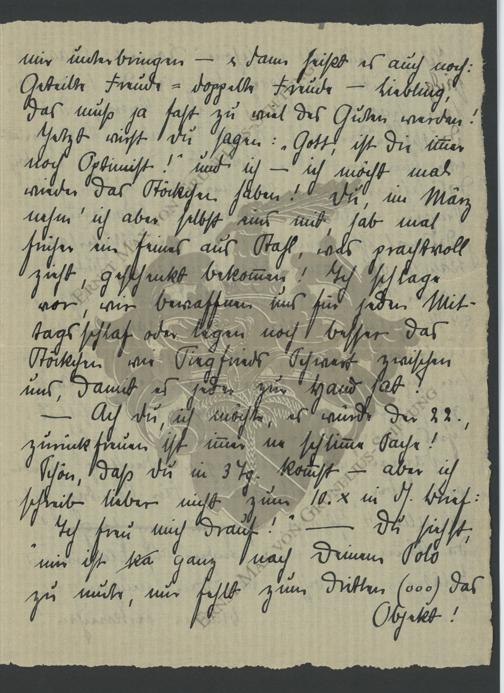 mir unterbringen — & dann heißt es auch noch:
Geteilte Freude = doppelte Freude — Liebling,
das muß ja fast zu viel des Guten werden!
Jetzt wirst Du sagen: „Gott, ist die immer
noch Optimist!" und ich — ich möcht mal
wieder das Stöckchen haben! Du, im März
nehm' ich aber selbst eins mit, hab mal
früher ein feines aus Stahl, was prachtvoll
zieht, geschenkt bekommen! Ich schlage
vor, wir bewaffnen uns für jeden Mit-
tagsschlaf oder legen noch besser das
Stöckchen wie Siegfrieds Schwert zwischen
uns, damit es jeder zur Hand hat!
— Ach Du, ich möchte, es würde der 22.,
zurückfreuen ist immer ne schlimme Sache!
Schön, daß Du in 3 Tg. kommst — aber ich
schreib lieber nicht zum 10. x in d. Brief:
"Ich freu mich drauf!" — Du siehst,
mir ist ganz nach Deinem Polo
zu mute, nur fehlt zum dritten (ooo) das
Objekt!